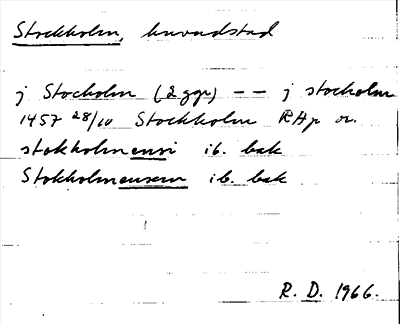 Stockholm, huvudstad
j Stocholm (2 ggr) — — j stocholm
1457 28/10 Stockholm RAp or.
stokholmensi ib. bak
Stokholmensem ib. bak
R. D. 1966.